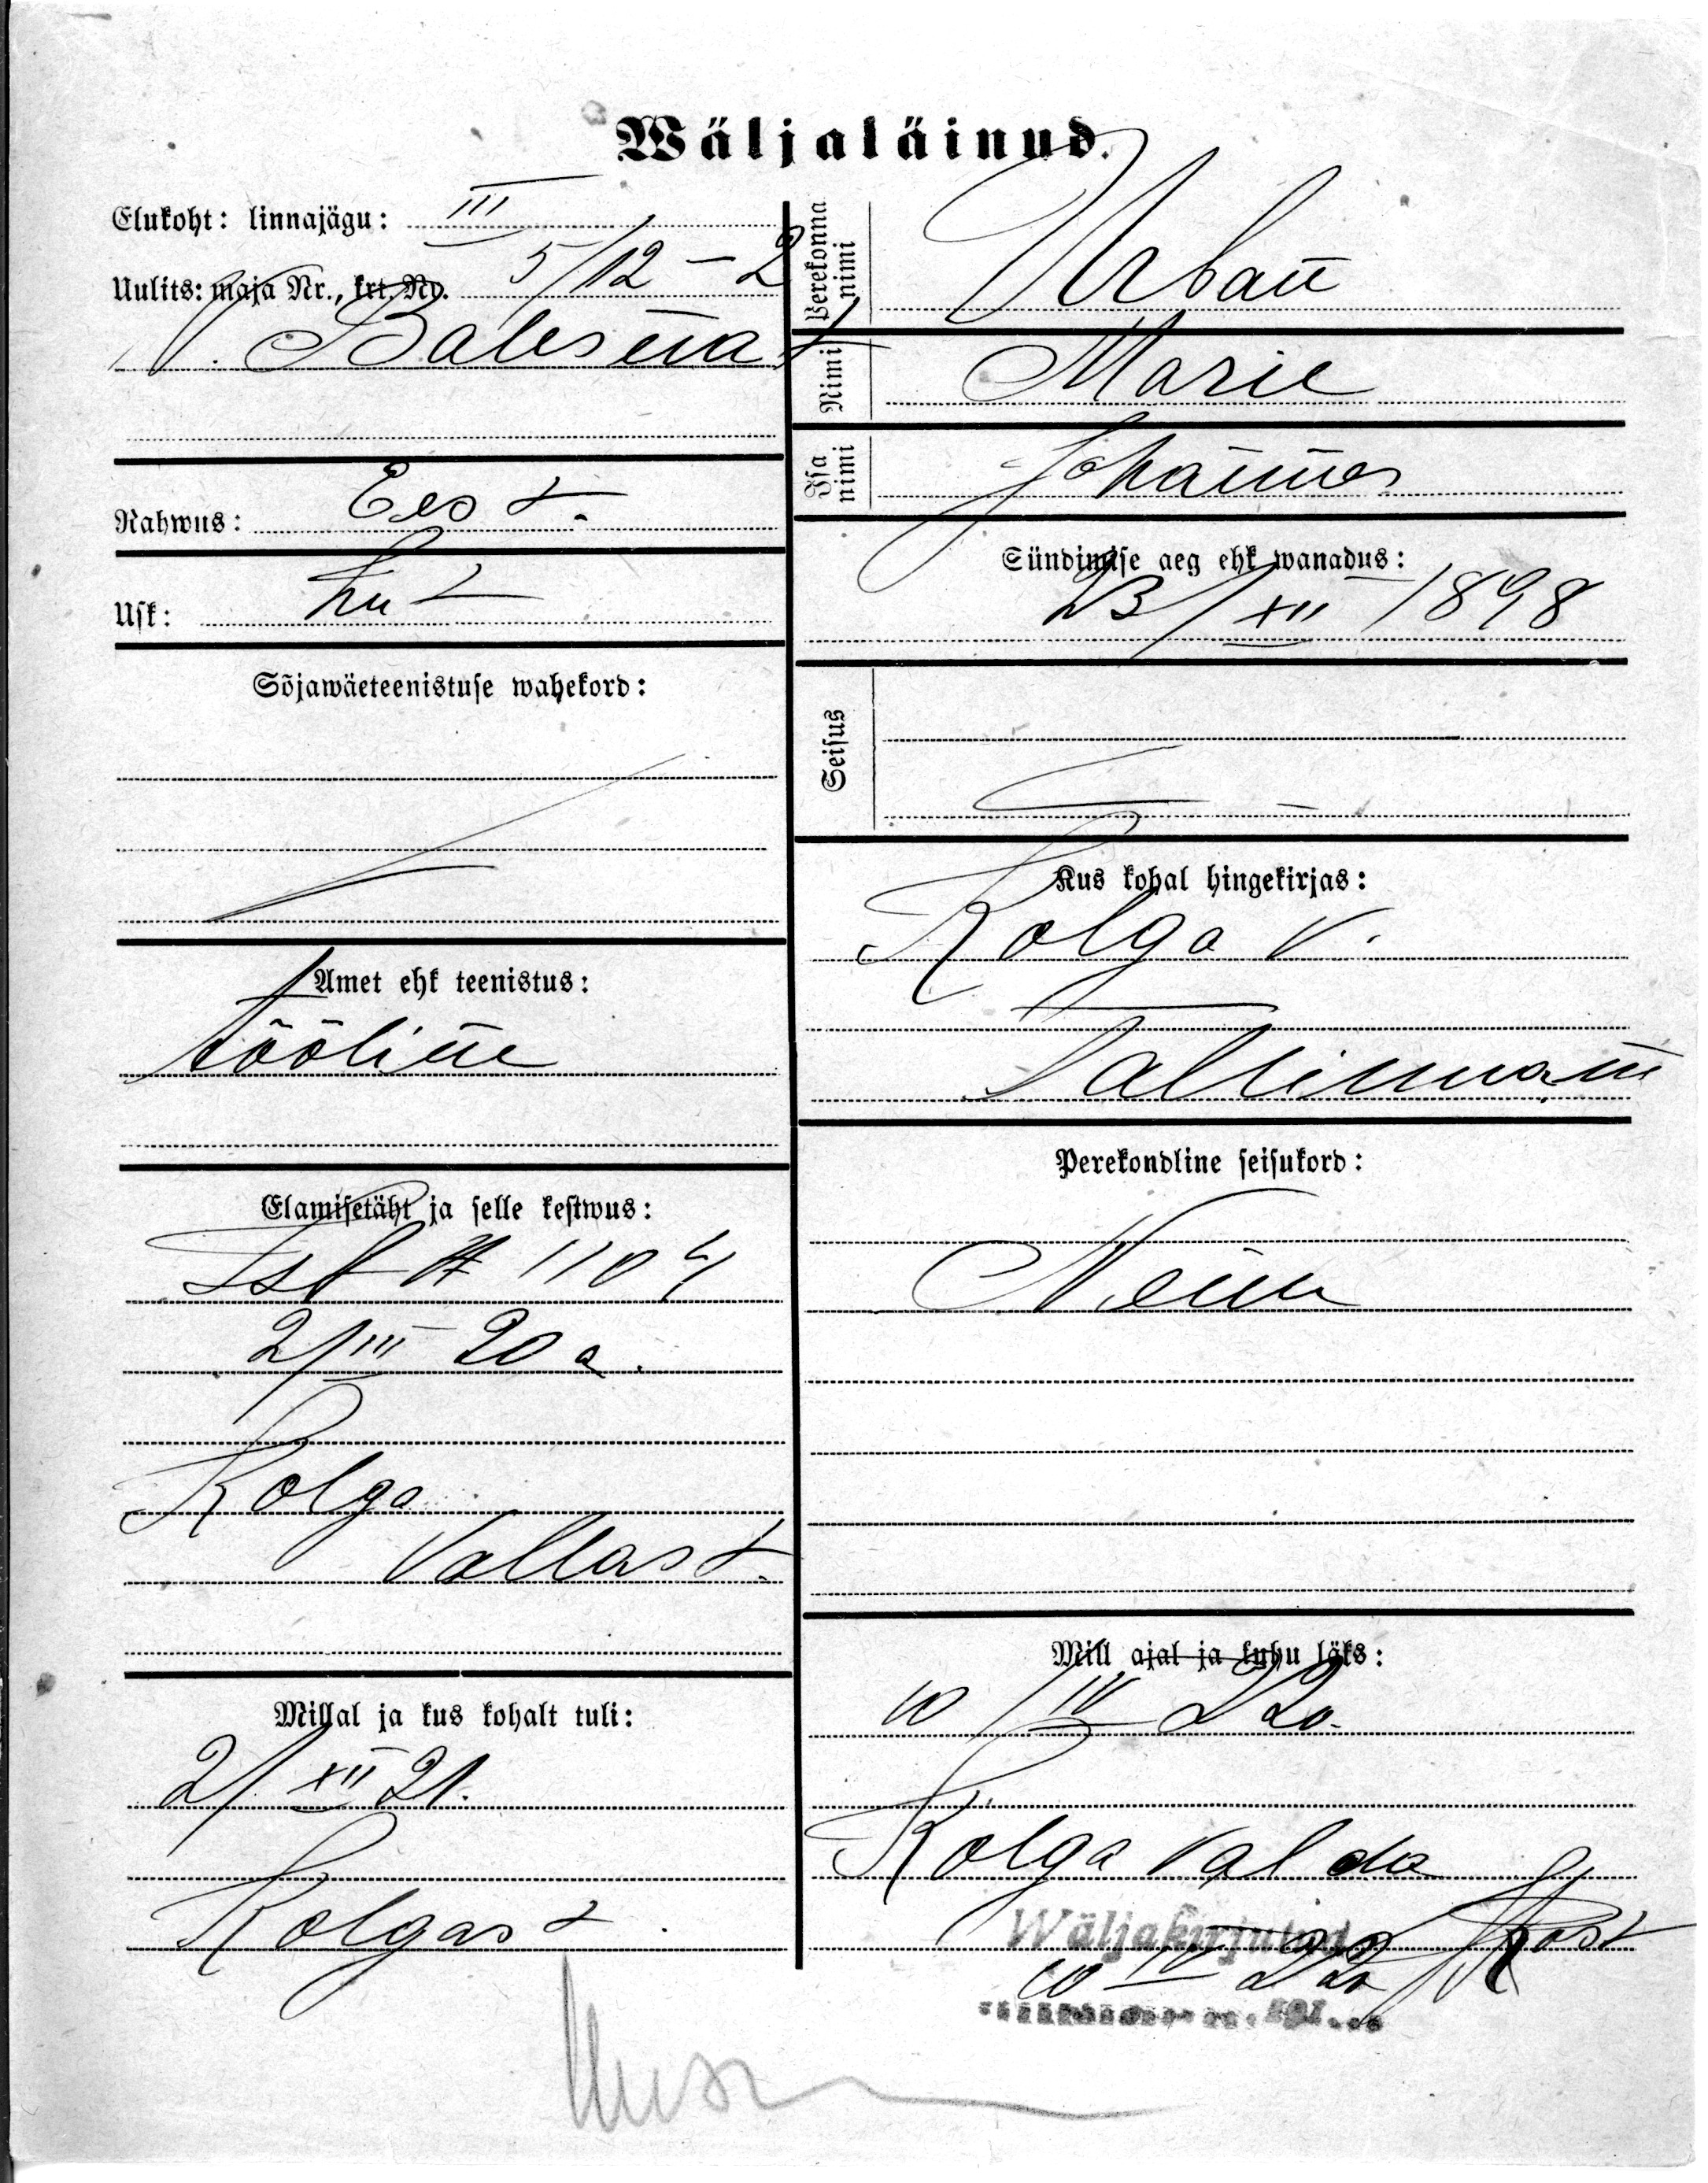 Wäljaläinud.
Elukoht: linnajägu: III
Uulits: maja Nr., krt. No. 5/12 - 2
Rahwus: Eest.
Usk: Lut
Sõjawäeteenistuse wahekord:
Amet ehk teenistus:
tööline
Elamisetäht ja selle kestwus:
# 1104
2/III 20 a.
Kolga
Vallast.
Millal ja kus kohalt tuli:
2/XII 21.
Kolgast.
Perekonna nimi Urban
Nimi Marie
Isa nimi Johannes
Sündimise aeg ehk wanadus:
23/XII 1898
Seisus
Kus kohal hingekirjas:
Kolga v.
Tallinnam
Perekondline seisukord:
Neiu
Mill ajal ja kuhu läks:
10/IV 22a.
Kolga valda
Wäljakirjutud
10 IV 22a